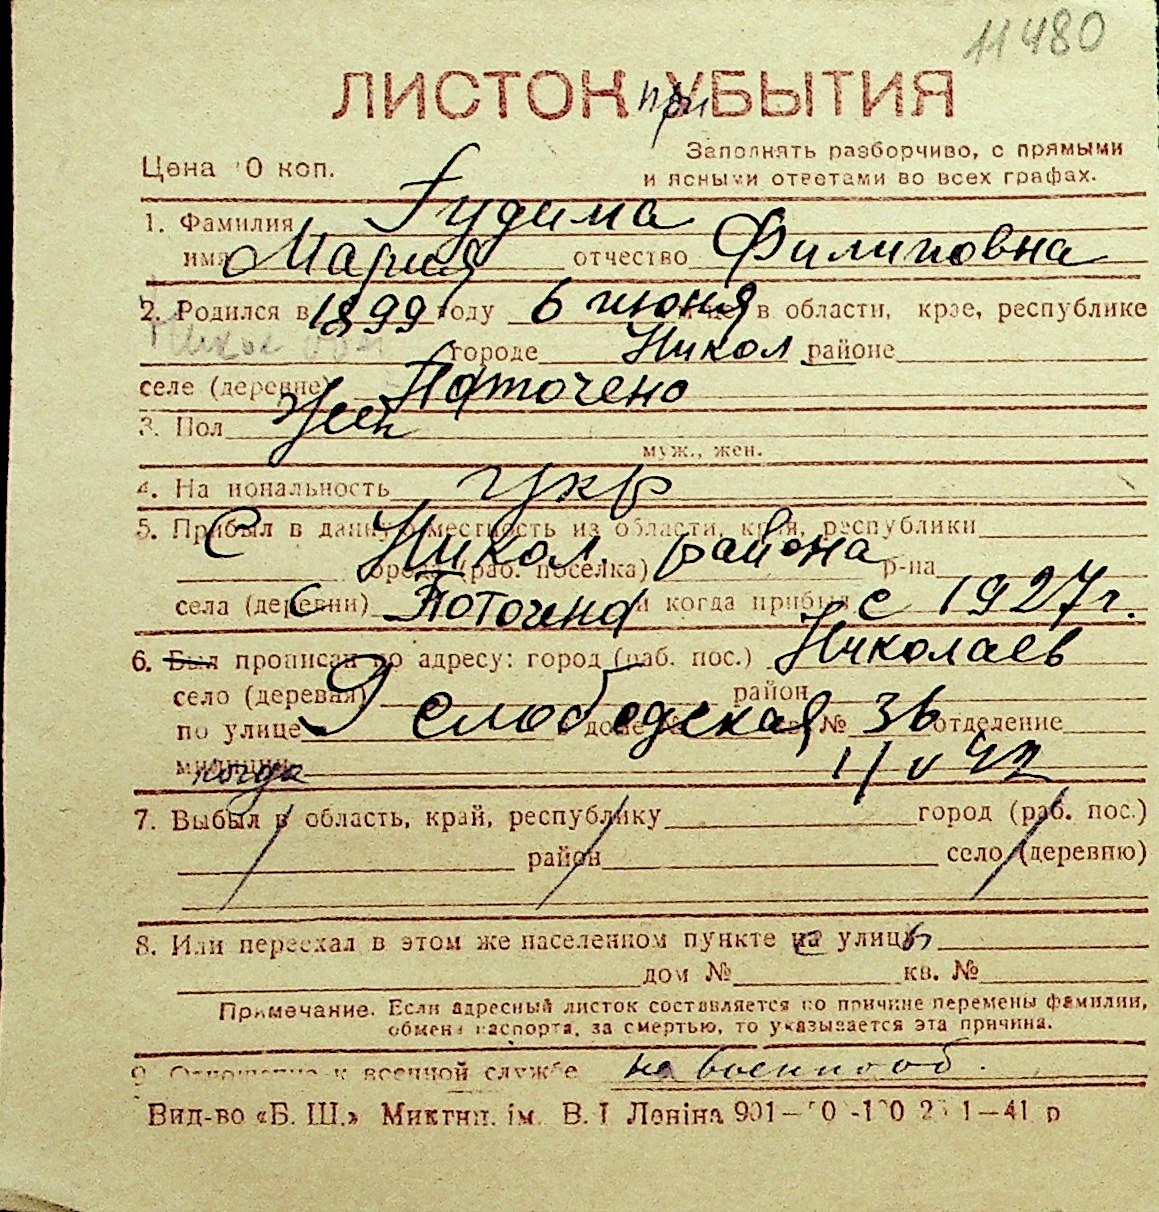 11480
ЛИСТОК при УБЫТИЯ
Заполнять разборчиво, с прямыми
Цена 0 коп.
и ясными ответами во всех графах.
1. Фамилия Гудима
имя Мария отчество Филиповна
2. Родился в 1899 году 6 июня в области, крае, республике
городе Никол районе
селе (деревне)
3. Пол Жен
муж., жен.
4. На иональность укр
5. Прибыл в данную местность из области, края, республики
С Никол. района
города (раб. поселка) р-на
села (деревни) с и когда прибыл с 1927 г.
6. Был прописан по адресу: город (раб. пос.) Николаев
село (деревня) район
по улице 9 слободская доме № № 36 отделение
милиции когда 1/V 42
7. Выбыл в область, край, республику город (раб. пос.)
район село (деревню)
8. Или переехал в этом же населенном пункте на улицу
дом № кв. №
Примечание. Если адресный листок составляется по причине перемены фамилии,
обмена паспорта, за смертью, то указывается эта причина.
9. Отношение к военной службе не военнооб.
Вид-во «Б. Ш.» Микгип. ім. В. І Леніна 901—